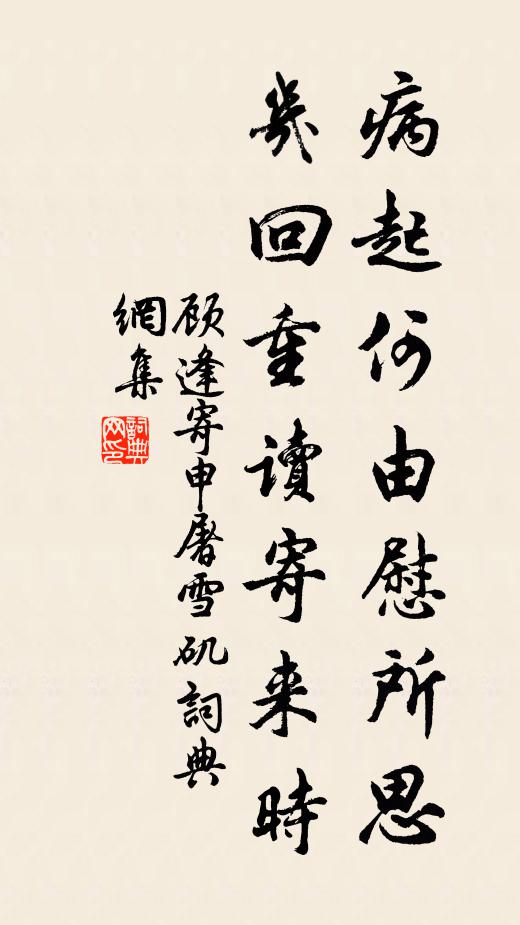 病起何由慰所思
幾回重讀寄来時
顾逢寄申屠雪矶詞典
網集
詞典
网印